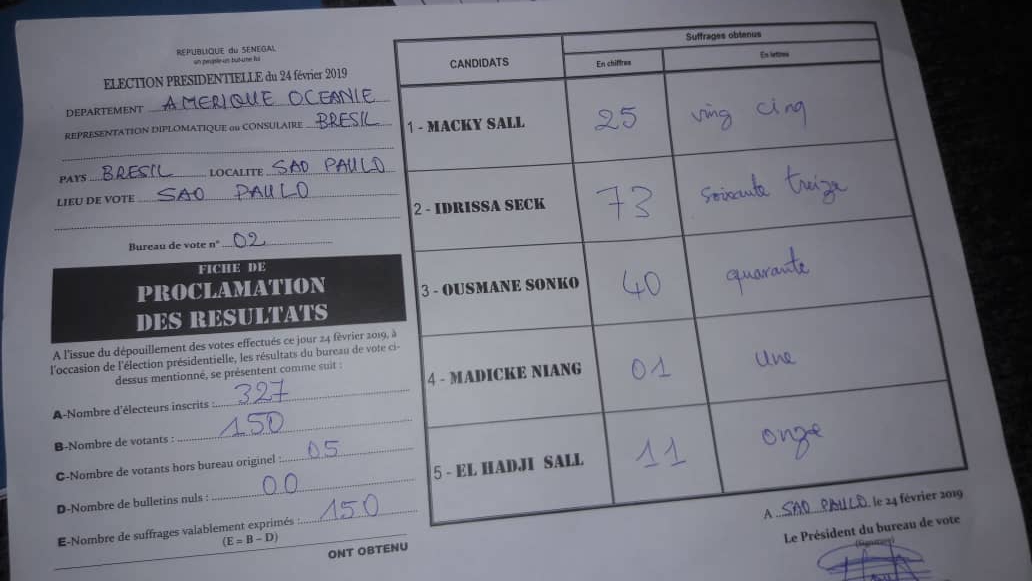 REPUBLIQUE du SENEGAL
un peuple un but une foi
ELECTION PRESIDENTIELLE du 24 février 2019
DEPARTEMENT AMERIQUE OCEANIE
REPRESENTATION DIPLOMATIQUE ou CONSULAIRE BRESIL
PAYS BRESIL LOCALITE SAO PAULO
LIEU DE VOTE SAO PAULO
Bureau de vote n° 02
FICHE DE
PROCLAMATION
DES RESULTATS
A l'issue du dépouillement des votes effectués ce jour 24 février 2019, à
l'occasion de l'élection présidentielle, les résultats du bureau de vote ci-
dessus mentionné, se présentent comme suit :
A-Nombre d'électeurs inscrits : 327
B-Nombre de votants : 150
C-Nombre de votants hors bureau originel : 05
D-Nombre de bulletins nuls : 00
E-Nombre de suffrages valablement exprimés : 150
(E = B – D)
ONT OBTENU
CANDIDATS
Suffrages obtenus
En chiffres En lettres
1 - MACKY SALL 25 ving cinq
2 - IDRISSA SECK 73 soixante treize
3 - OUSMANE SONKO 40 quarante
4 - MADICKE NIANG 01 une
5 - EL HADJI SALL 11 onze
A SAO PAULO le 24 février 2019
Le Président du bureau de vote
(Signature)